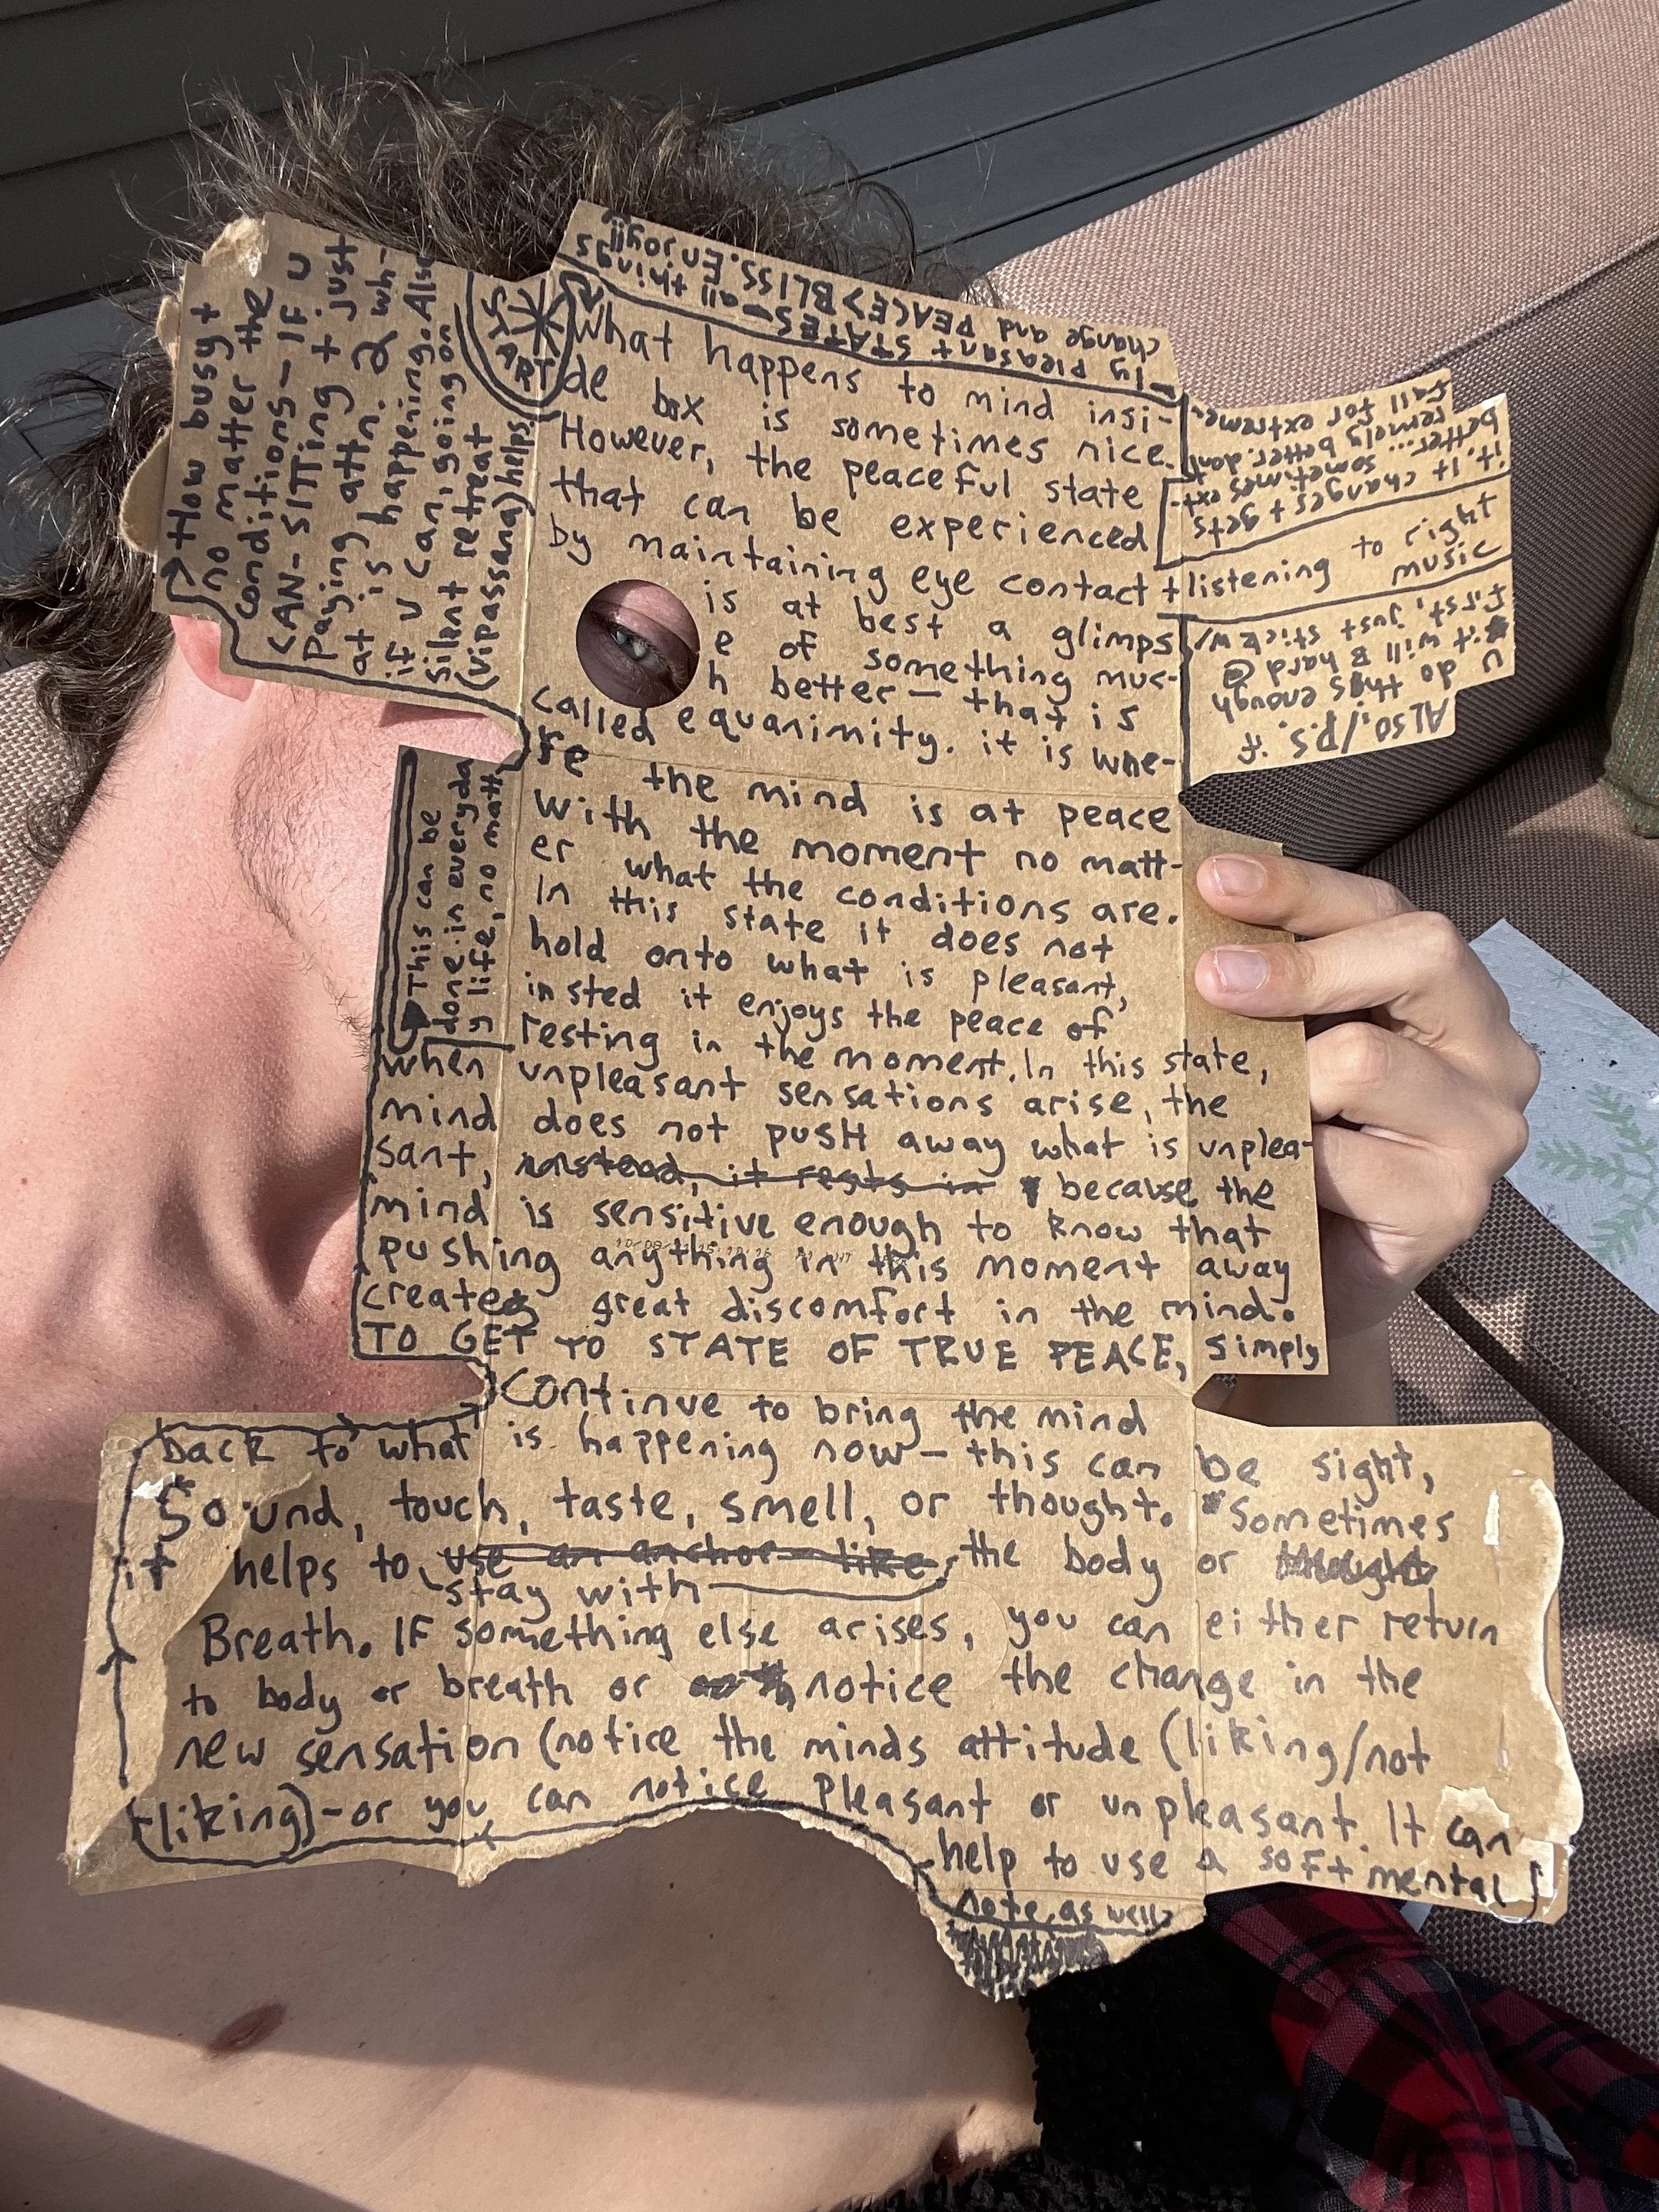 START
What happens to mind insi-
de box is sometimes nice.
However, the peaceful state
that can be experienced
by maintaining eye contact + listening to right
music
is at best a glimps
e of something muc-
h better — that is
called equanimity. it is whe-
re the mind is at peace
with the moment no matt-
er what the conditions are.
In this state it does not
hold onto what is pleasant,
insted it enjoys the peace of
resting in the moment. In this state,
when unpleasant sensations arise, the
mind does not push away what is unplea-
sant, instead, it rests in because the
mind is sensitive enough to know that
pushing anything in this moment away
creates great discomfort in the mind.
TO GET TO STATE OF TRUE PEACE, simply
continue to bring the mind
back to what is happening now — this can be sight,
sound, touch, taste, smell, or thought. Sometimes
it helps to use an anchor - like the body or thought
stay with
Breath. IF something else arises, you can either return
to body or breath or notice the change in the
new sensation (notice the minds attitude (liking/not
liking) - or you can notice pleasant or unpleasant. It can
help to use a soft mental
note, as well
This can be
done in everyda
y life, no matt
How busy +
no matter the
conditions — IF U
CAN - SITTING + just
paying attn. 2 wh-
at is happening. Also
if U can, going on
silent retreat
(vipassana) helps.
ALSO,/P.S. if
u do this enough
it will B hard @
first, just stick w/
it. it changes + gets
better... sometimes ext-
remely better. dont
fall for extreme-
ly pleasant STATES — all things
change and PEACE > BLISS. Enjoy!!